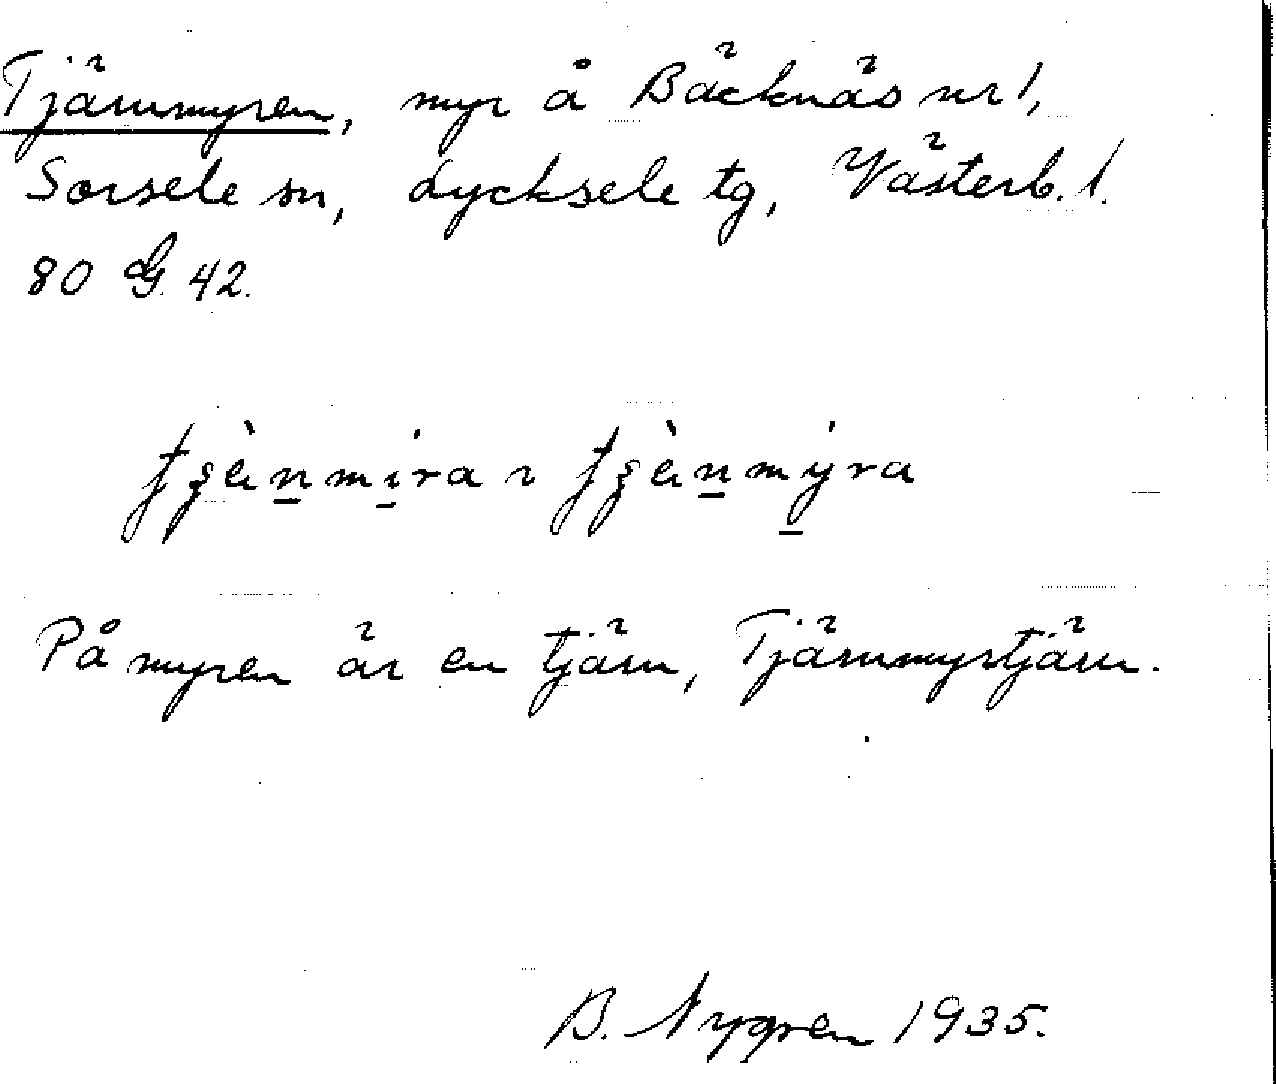 Tjärnmyren, myr å Bäcknäs nr 1,
Sorsele sn, Lycksele tg, Västerb. l.
80 G 42.
På myren är en tjärn, Tjärnmyrtjärn.
B. Nygren 1935.